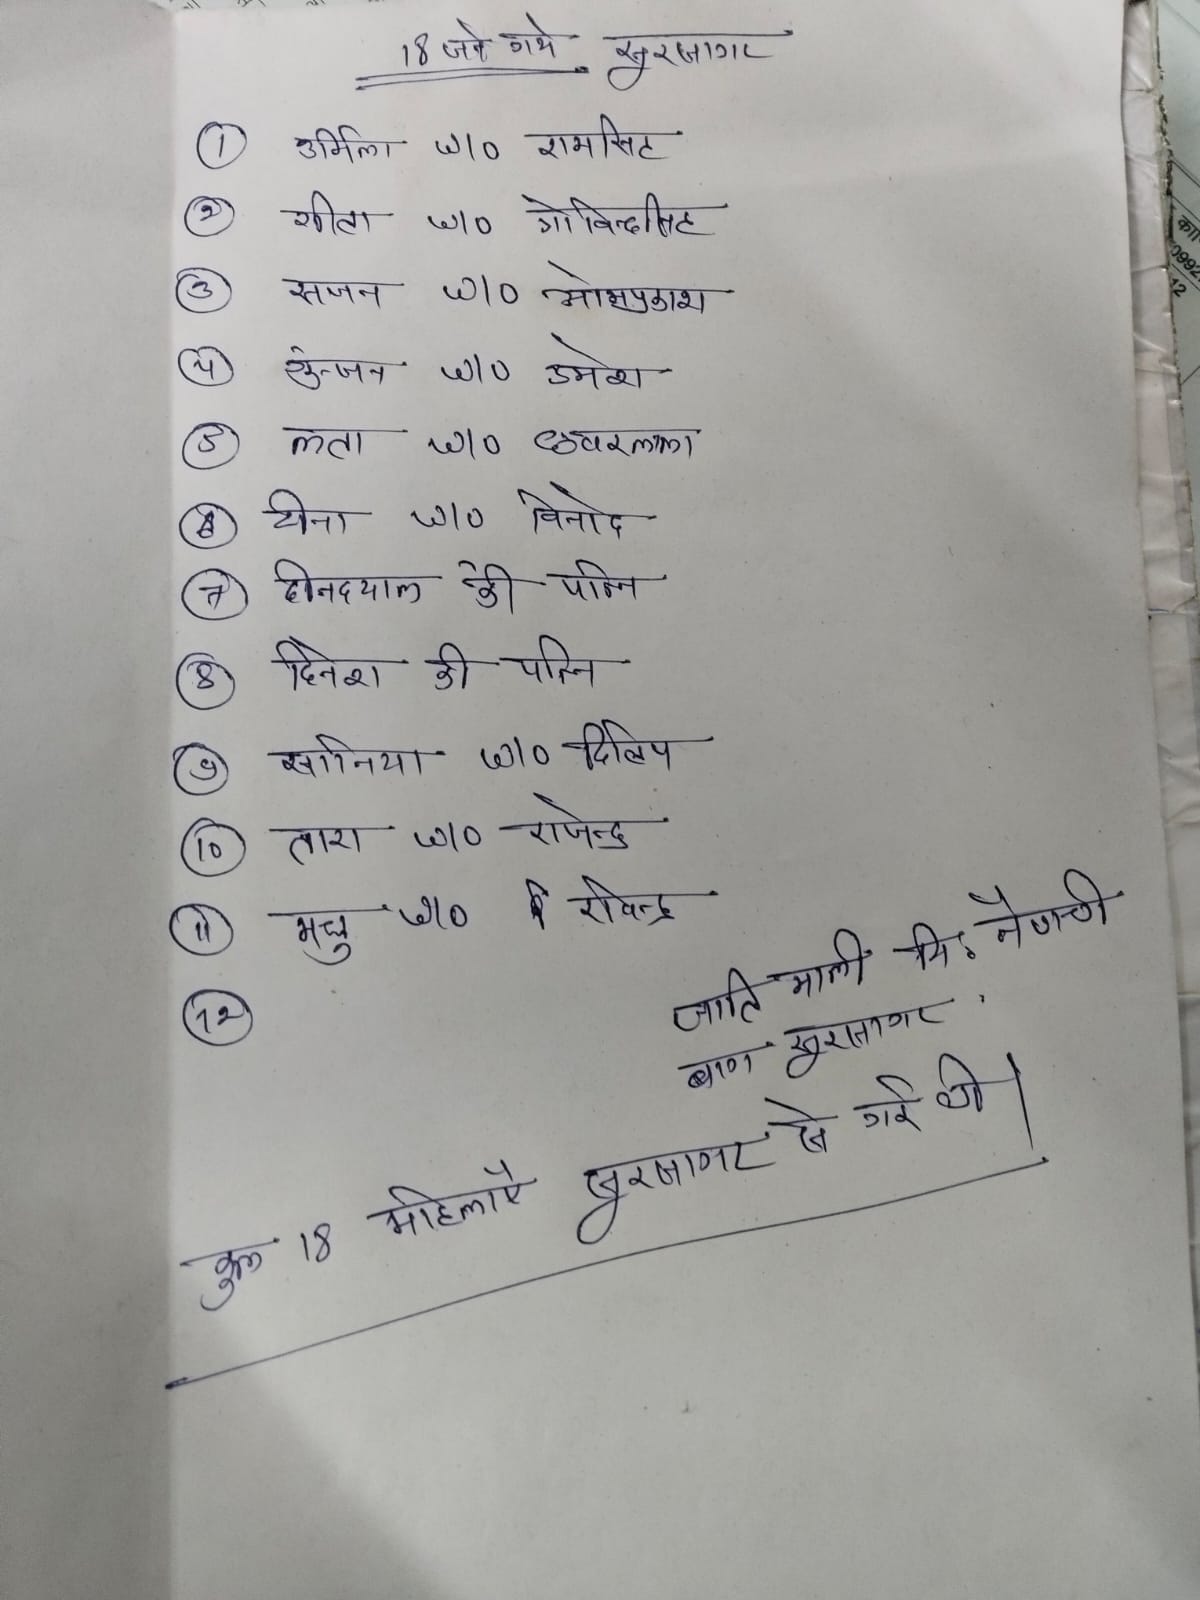 18 जने गये सुरसागर
① उर्मिला w/o रामसिंह
② गीता w/o गोविन्दसिंह
③ सजन w/o ओमप्रकाश
④ गुन्जन w/o उमेश
⑤ लता w/o छवरलाल
⑥ टीना w/o विनोद
⑦ दीनदयाल की पत्नि
⑧ दिनेश की पत्नि
⑨ सानिया w/o दिलिप
⑩ तारा w/o राजेन्द्र
⑪ मधु w/o रविन्द्र
⑫
जाति माली नि. नैणची
बाग सुरसागर
कुल 18 महिलाऐ सुरसागर से गई थी।